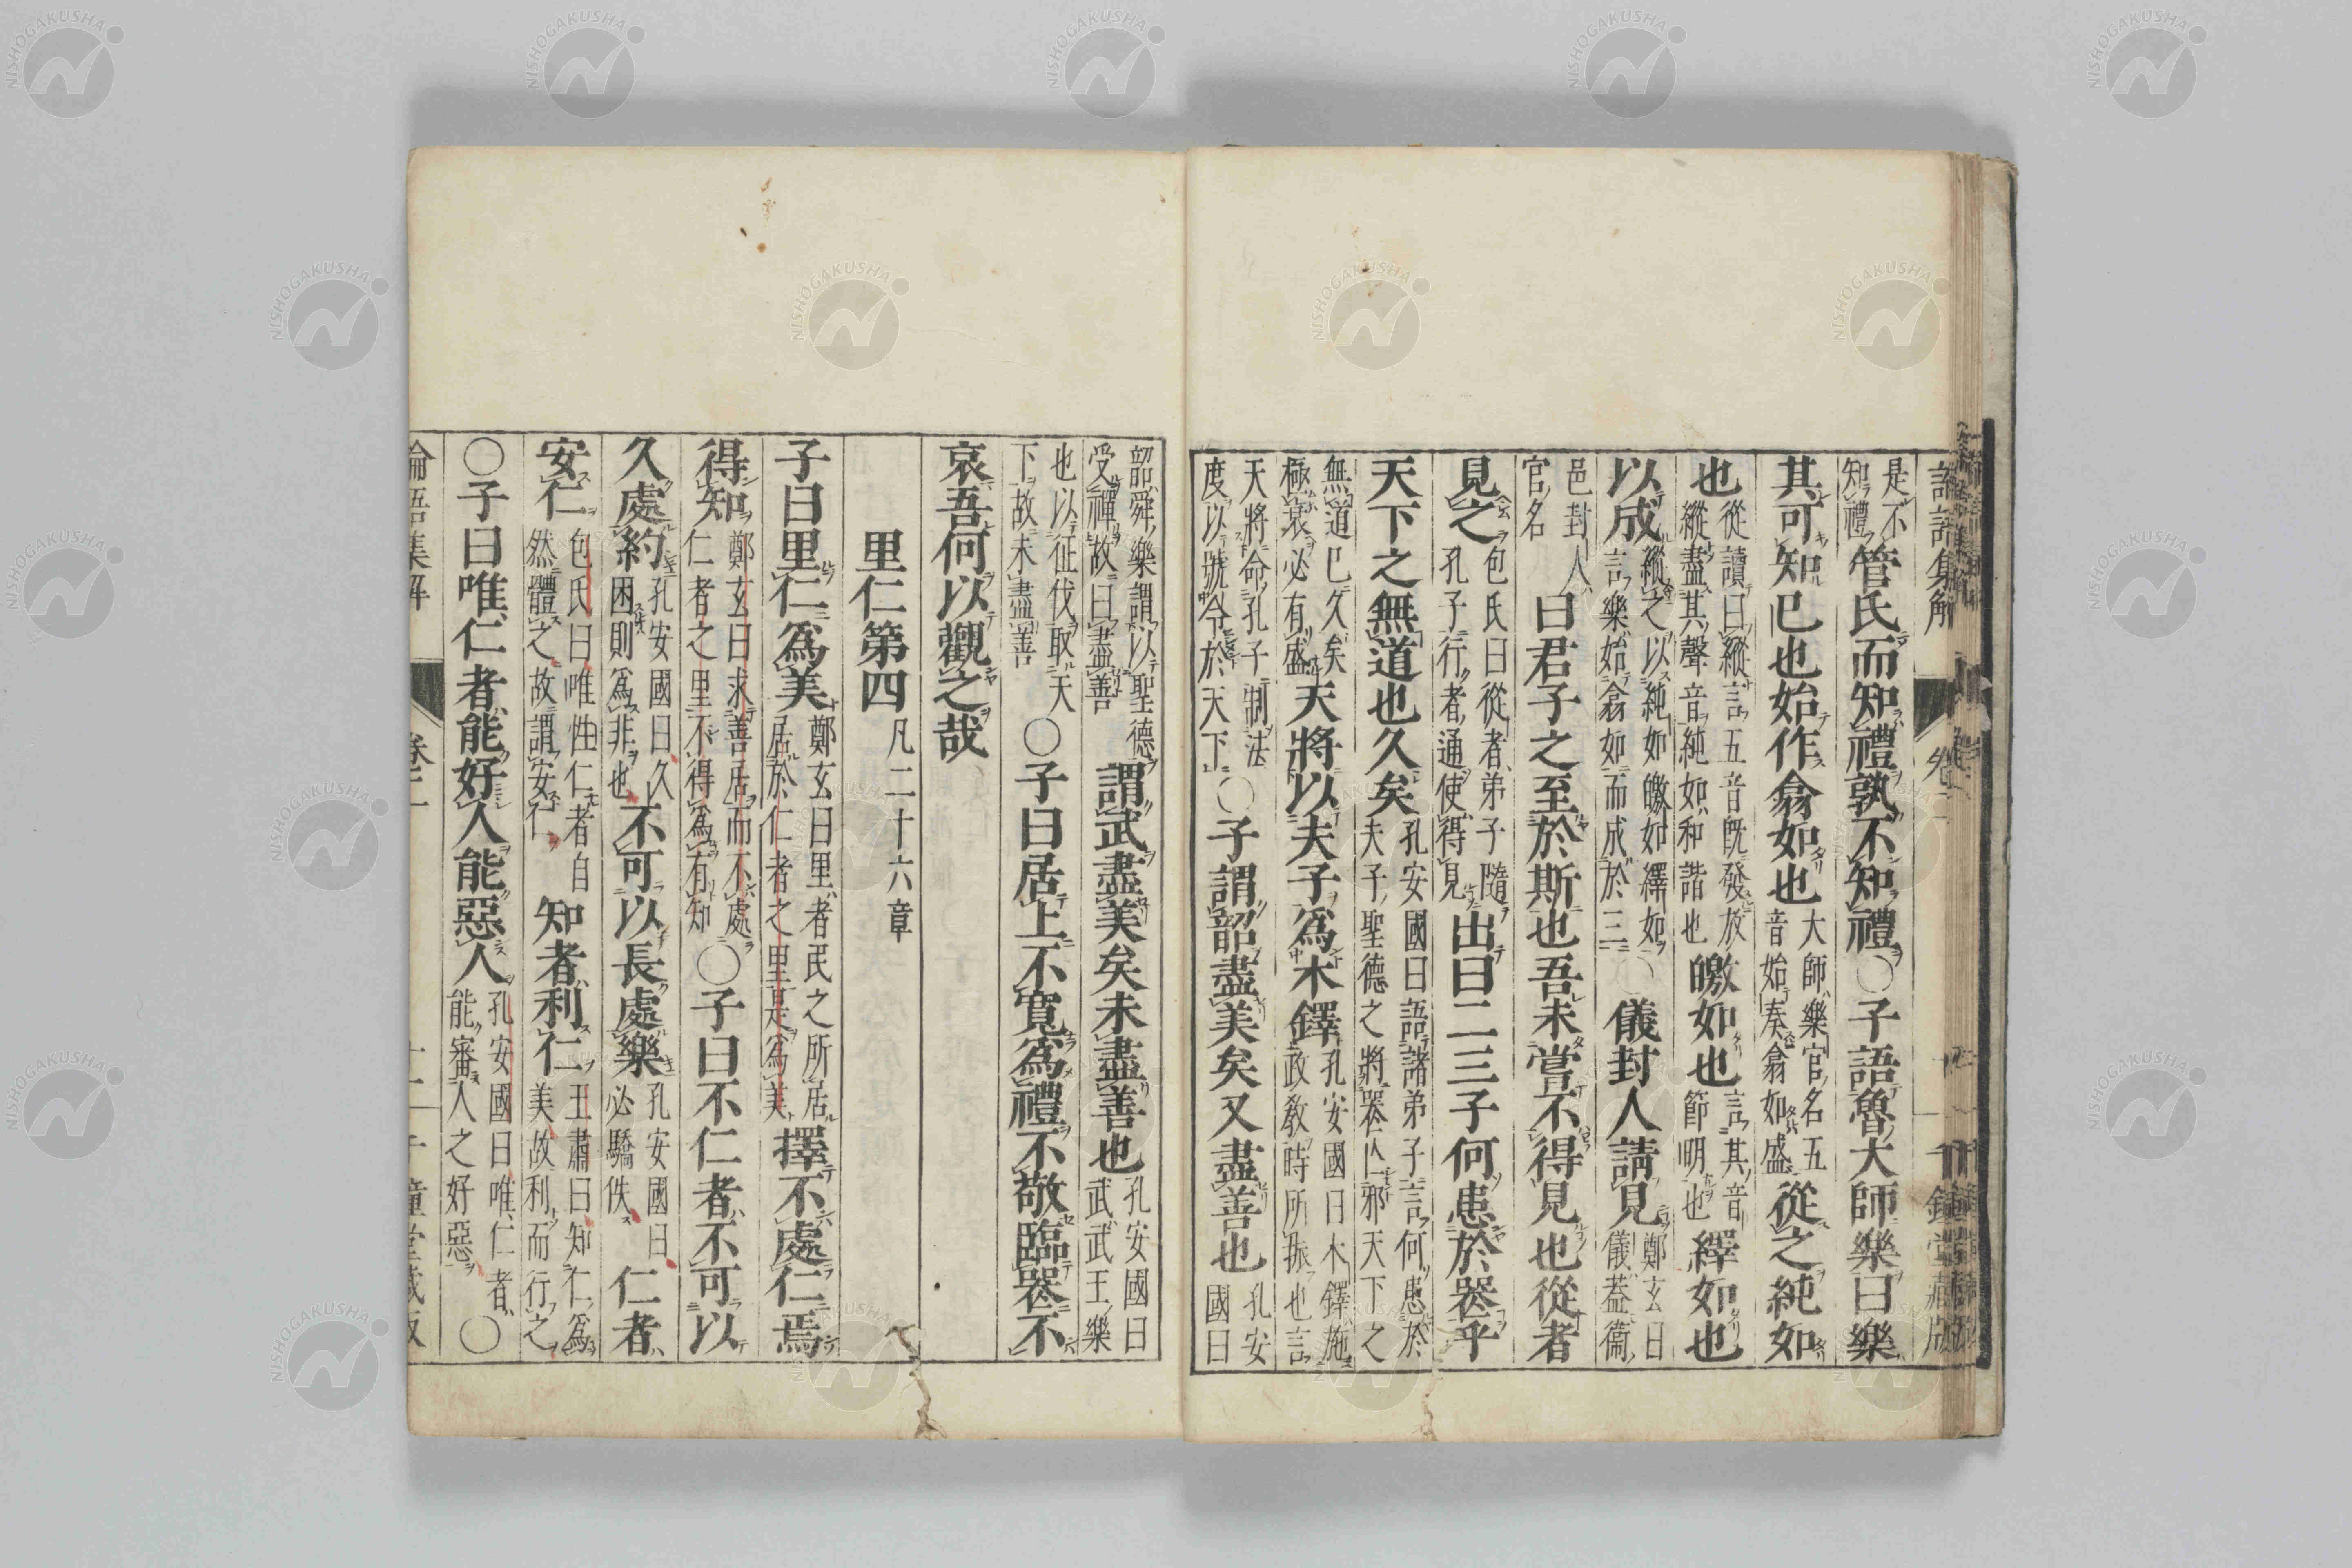 論語集解 卷二 千鍾堂藏版
是不知禮管氏而知禮孰不知禮〇子語魯大師樂曰樂
其可知已也始作翕如也大師樂官名五音始奏翕如盛從之純如
也從讀曰縱言五音既發放縱盡其聲音純如和諧也皦如也言其音節明也繹如也
以成縱之以純如皦如繹如言樂始翕如而成於三〇儀封人請見鄭玄曰儀蓋衞
邑封人官名曰君子之至於斯也吾未嘗不得見也從者
見之包氏曰從者弟子隨孔子行者通使得見出曰二三子何患於喪乎
天下之無道也久矣孔安國曰語諸弟子言何患於夫子聖德之將喪亡邪天下之
無道已久矣極衰必有盛天將以夫子爲木鐸孔安國曰木鐸施政教時所振也言
天將命孔子制法度以號令於天下〇子謂韶盡美矣又盡善也孔安國曰
韶舜樂謂以聖德受禪故曰盡善謂武盡美矣未盡善也孔安國曰武武王樂
也以征伐取天下故未盡善〇子曰居上不寬爲禮不敬臨喪不
哀吾何以觀之哉
里仁第四凡二十六章
子曰里仁爲美鄭玄曰里者民之所居居於仁者之里是爲美擇不處仁焉
得知鄭玄曰求善居而不處仁者之里不得爲有知〇子曰不仁者不可以
久處約孔安國曰久困則爲非也不可以長處樂孔安國曰必驕佚仁者
安仁包氏曰唯性仁者自然體之故謂安仁知者利仁王肅曰知仁爲美故利而行之
〇子曰唯仁者能好人能惡人孔安國曰唯仁者能審人之好惡〇
論語集解 卷二 十一 千鍾堂藏版
NISHOGAKUSHA